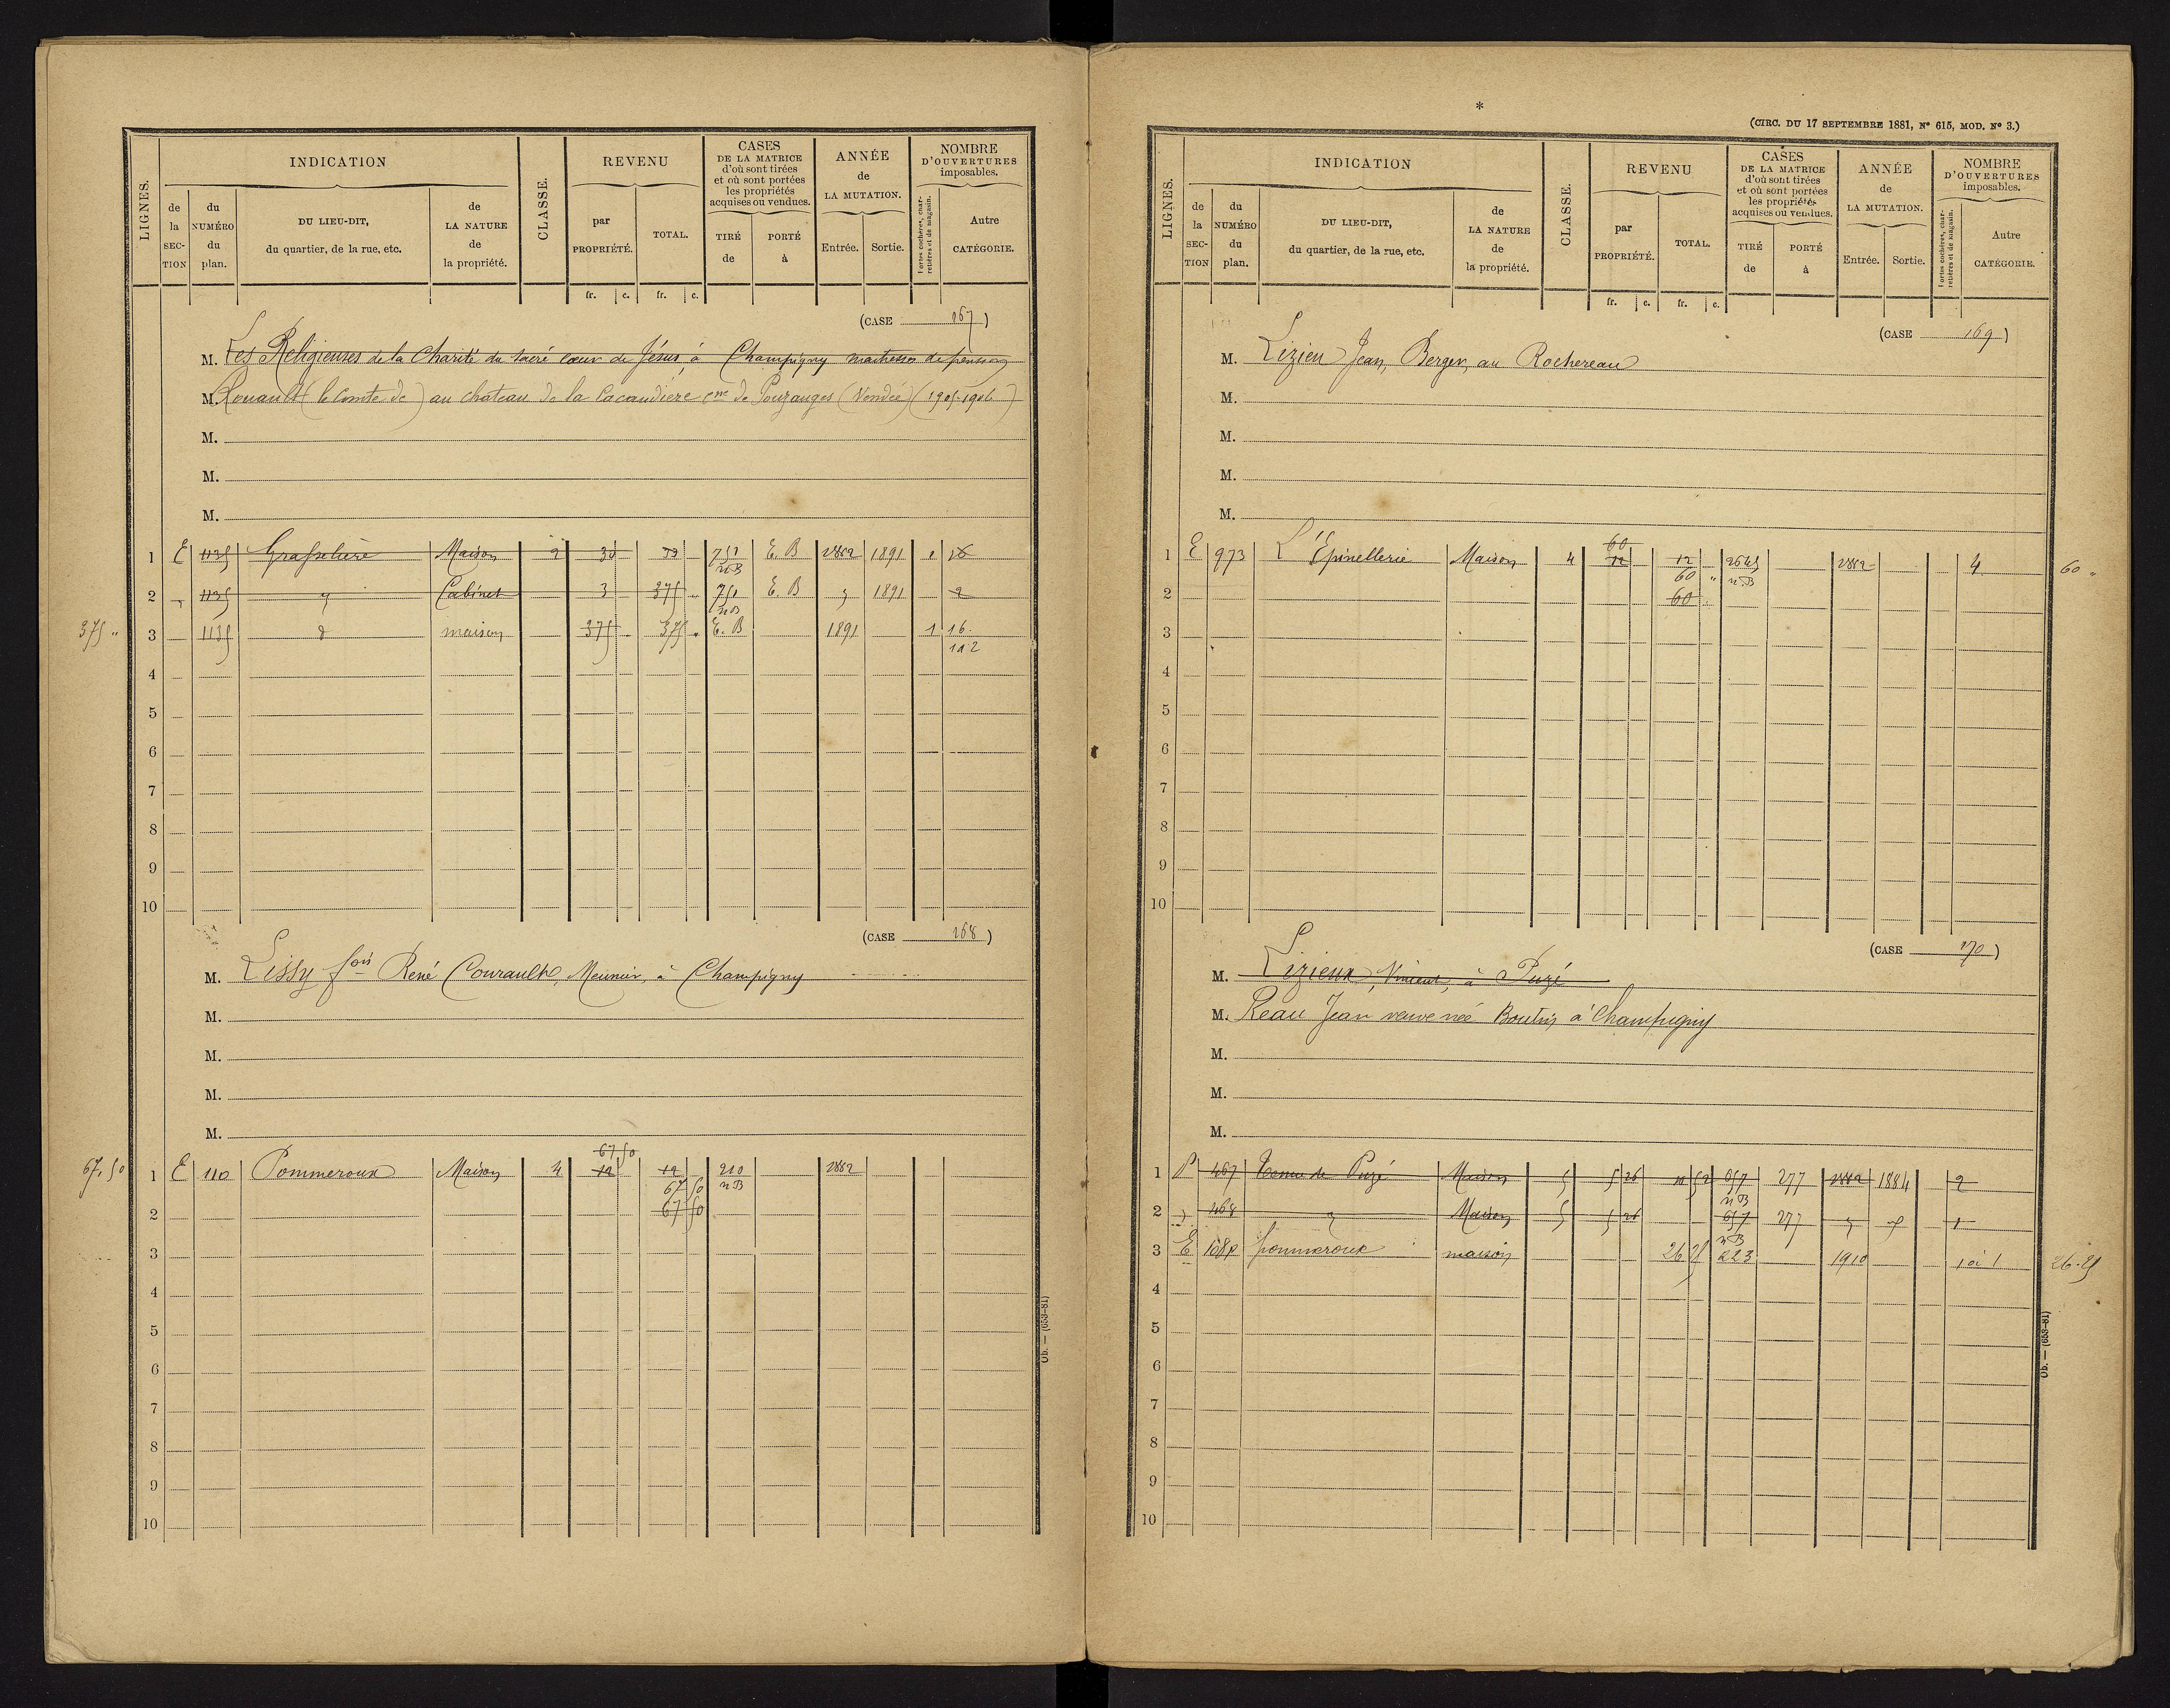 LIGNES.
INDICATION
CLASSE.
REVENU
CASES
DE LA MATRICE
d'où sont tirées
et où sont portées
les propriétés
acquises ou vendues.
ANNÉE
de
LA MUTATION.
NOMBRE
D'OUVERTURES
imposables.
de la SECTION
du NUMÉRO du plan.
DU LIEU-DIT,
du quartier, de la rue, etc.
de LA NATURE de la propriété.
par PROPRIÉTÉ.
TOTAL.
TIRÉ de
PORTÉ à
Entrée.
Sortie.
Portes cochères, charretières et de magasin.
Autre CATÉGORIE.
fr. c. fr. c.
(CASE 167)
M. Les Religieuses de la Charité du sacré cœur de Jésus, à Champigny maitresses de pension
M. Rouault (le Comte de) au château de la Cacaudière cne de Pouzauges (Vendée) (1905-1906)
M.
M.
M.
1 E 1135 Maison 2 30 751 E. B 1882 1891 1 16
nB
2 1135 Cabinet 3 375 751 E. B 1891 2
nB
375 " 3 1135 d maison 375 375 " E. B 1891 1 16
1 à 2
4
5
6
7
8
9
10
(CASE 168)
M. Lissy fois René Courault, Meunier, à Champigny
M.
M.
M.
M.
67 50
67.50 1 E 110 Pommeroux Maison 4 12 12 210 1882
67 50 nB
2 67 50
3
4
5
6
7
8
9
10
Ob. — (653-81)
*
(CIRC. DU 17 SEPTEMBRE 1881, N° 615, MOD. N° 3.)
LIGNES.
INDICATION
CLASSE.
REVENU
CASES
DE LA MATRICE
d'où sont tirées
et où sont portées
les propriétés
acquises ou vendues.
ANNÉE
de
LA MUTATION.
NOMBRE
D'OUVERTURES
imposables.
de la SECTION
du NUMÉRO du plan.
DU LIEU-DIT,
du quartier, de la rue, etc.
de LA NATURE de la propriété.
par PROPRIÉTÉ.
TOTAL.
TIRÉ de
PORTÉ à
Entrée.
Sortie.
Portes cochères, charretières et de magasin.
Autre CATÉGORIE.
fr. c. fr. c.
(CASE 169)
M. Lizieu Jean, Berger, au Rochereau
M.
M.
M.
M.
60
1 E 973 L'Epinellerie Maison 4 12 12 1882 4 60 "
60 " nB
2 60
3
4
5
6
7
8
9
10
(CASE 170)
M. Lizieux, Vincent, à Puzé
M. Reau Jean veuve née Boutin à Champigny
M.
M.
M.
1 467 de Puzé Maison 5 5 26 657 277 1882 1884 2
nB
2 468 Maison 5 5 26 657 277 1
nB
3 E pommeroux maison 26 25 223 1910 1 à 1 26.25
4
5
6
7
8
9
10
Ob. — (653-81)